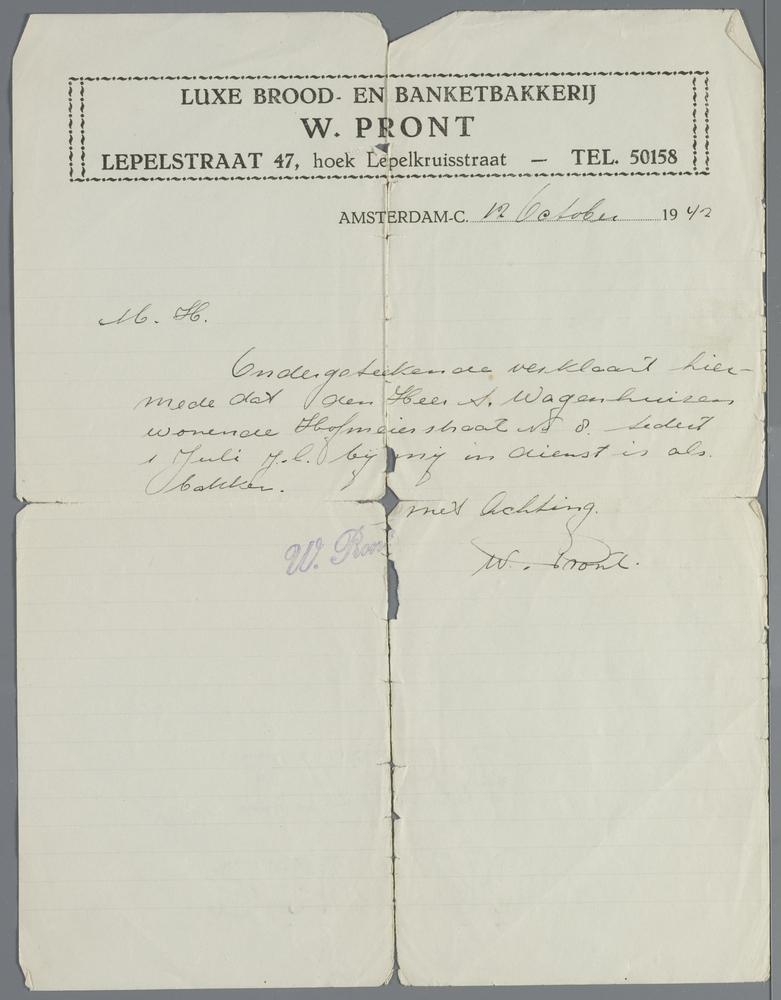 LUXE BROOD- EN BANKETBAKKERIJ
W. PRONT
LEPELSTRAAT 47, hoek Lepelkruisstraat — TEL. 50158
AMSTERDAM-C. 12 October 1942
M. H.
Ondergeteekende verklaart hier-
mede dat den Heer S. Wagenhuizen
wonende Hofmeierstraat No 8 sedert
1 Juli j.l. bij mij in dienst is als
bakker.
met Achting.
W. Pront
W. Pront.